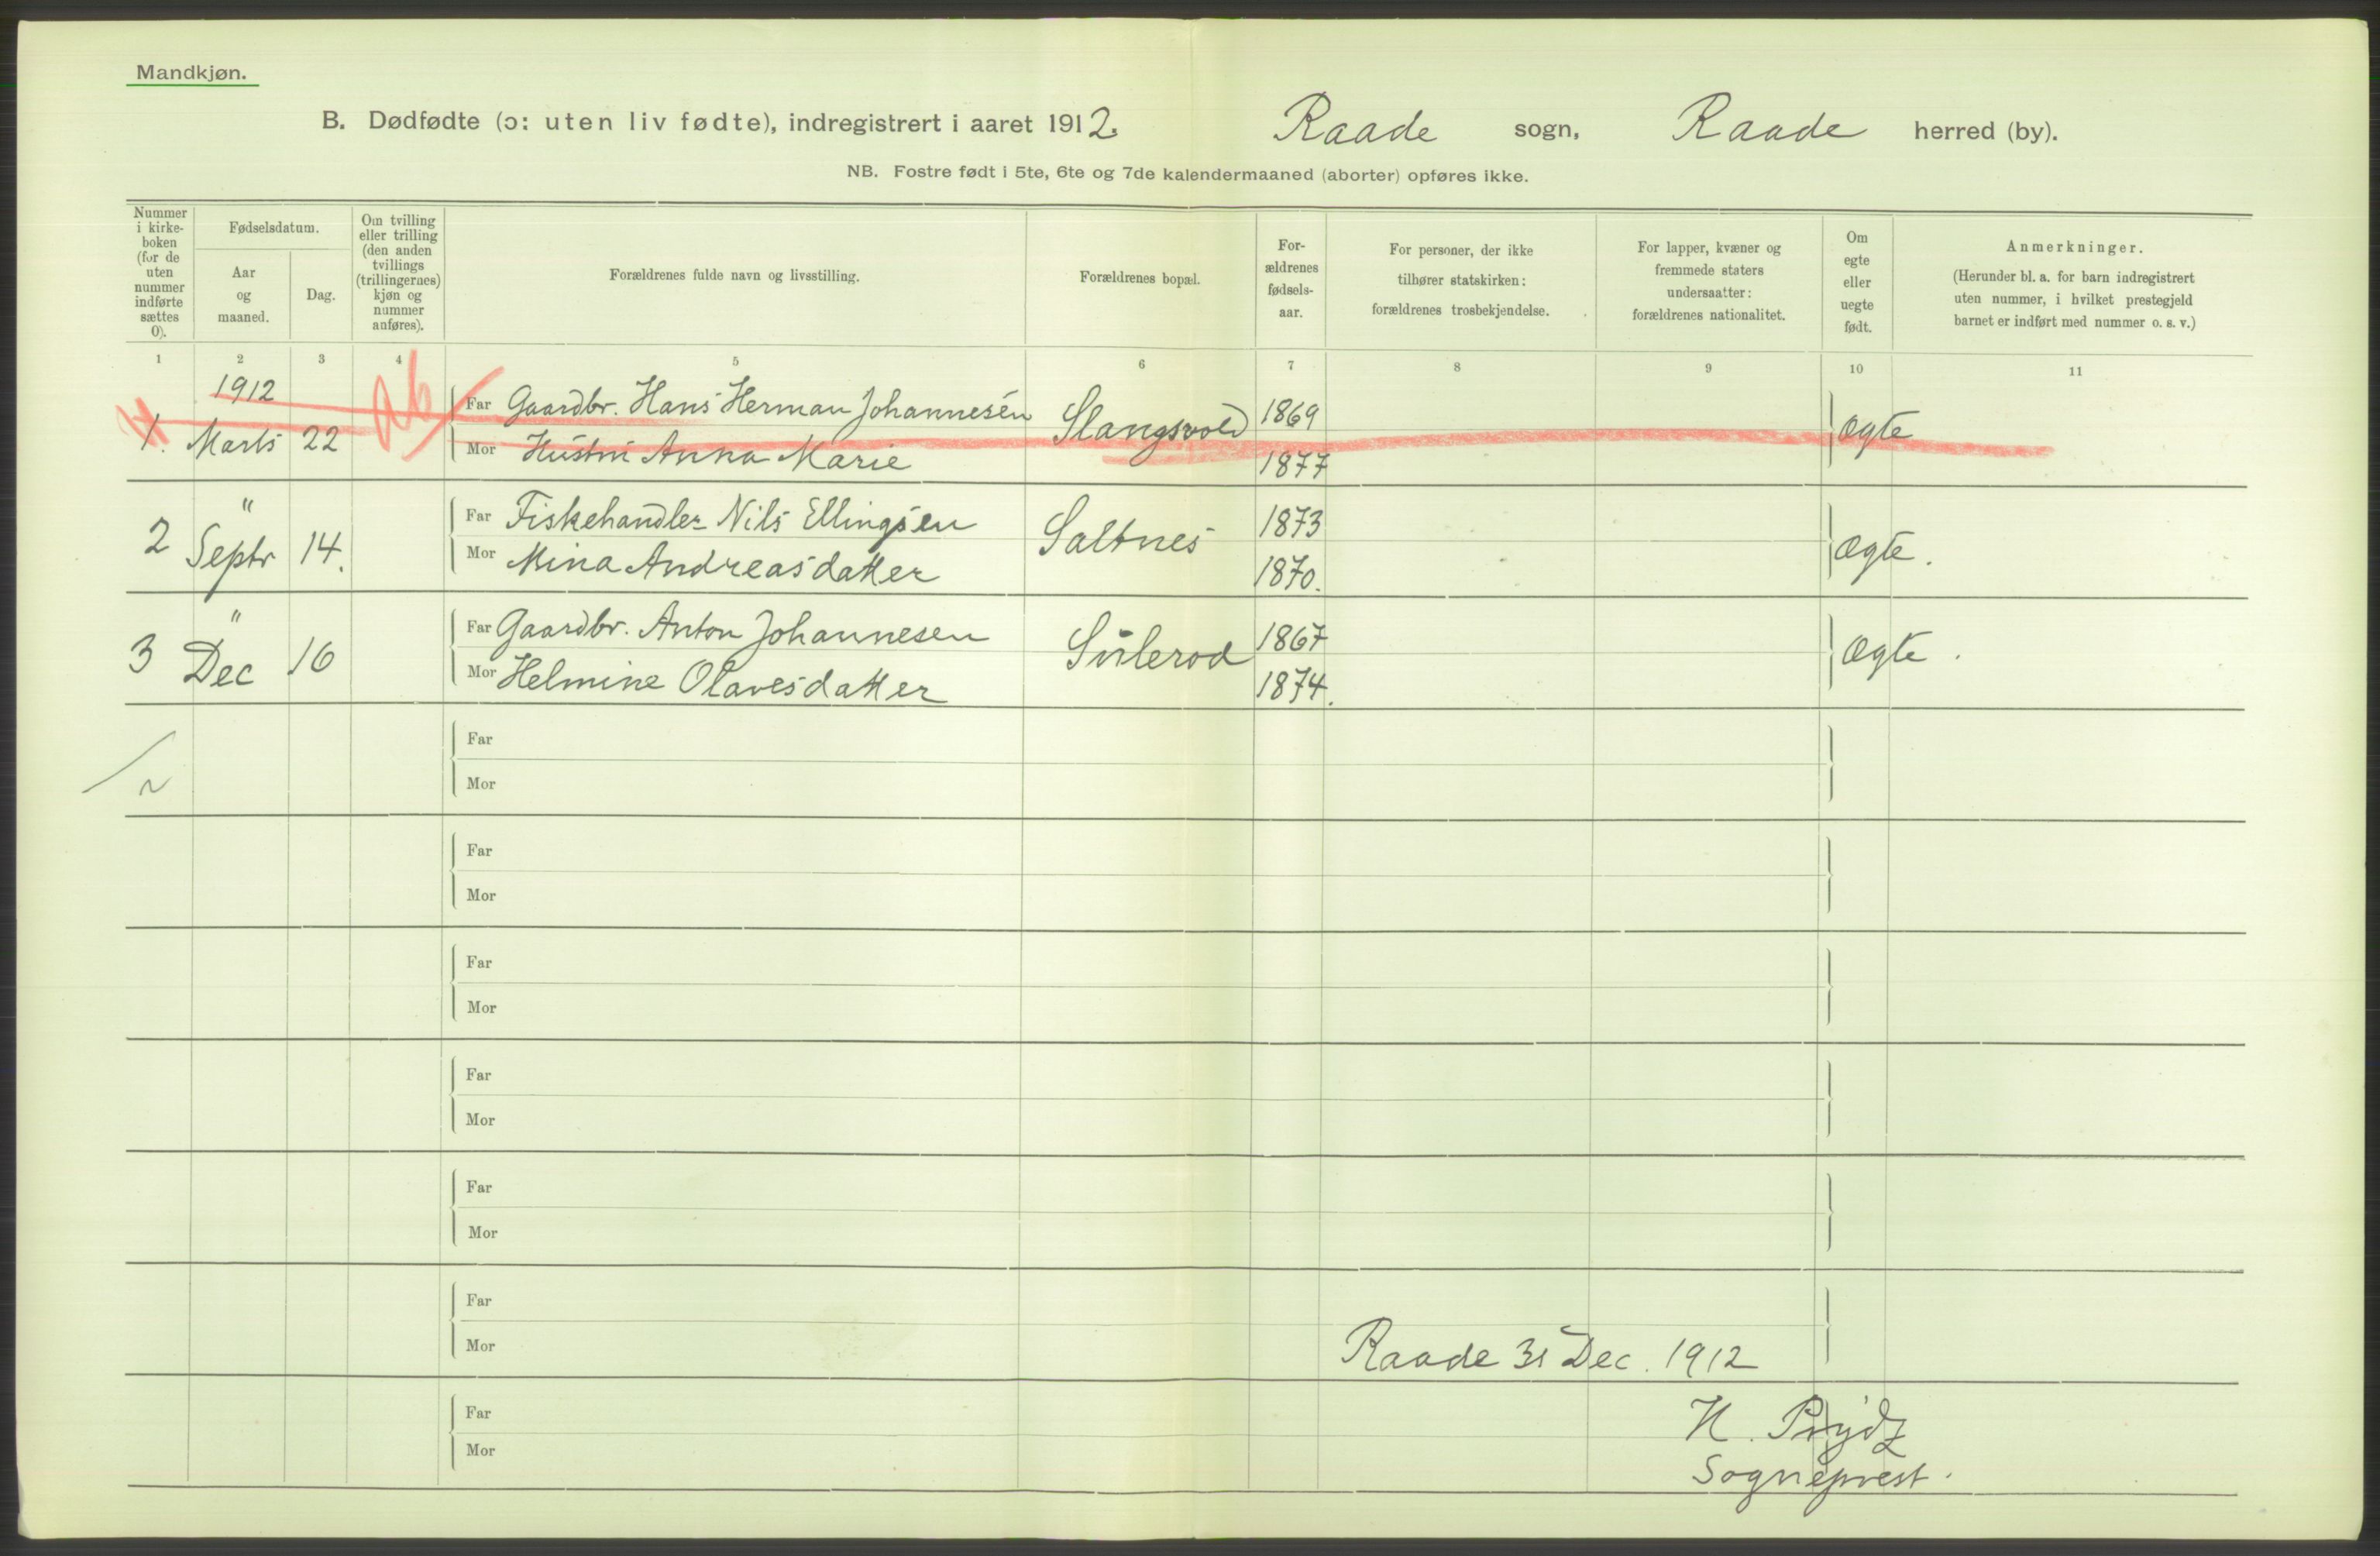 Mandkjøn.
B. Dødfødte (ɔ: uten liv fødte), indregistrert i aaret 1912. Raade sogn, Raade herred (by).
NB. Fostre født i 5te, 6te og 7de kalendermaaned (aborter) opføres ikke.
Nummer i kirke-boken (for de uten nummer indførte sættes 0).
Fødselsdatum.
Aar og maaned.
Dag.
Om tvilling eller trilling (den anden tvillings (trillingernes) kjøn og nummer anføres).
Forældrenes fulde navn og livsstilling.
Forældrenes bopæl.
For-ældrenes fødsels-aar.
For personer, der ikke tilhører statskirken: forældrenes trosbekjendelse.
For lapper, kvæner og fremmede staters undersaatter: forældrenes nationalitet.
Om egte eller uegte født.
Anmerkninger.
(Herunder bl. a. for barn indregistrert uten nummer, i hvilket prestegjeld barnet er indført med nummer o. s. v.)
1 2 3 4 5 6 7 8 9 10 11
1912
1. Marts 22 Ab Far Gaardbr. Hans Herman Johannesen Slangsvold 1869 Ægte
Mor Hustru Anna Marie 1877
"
2 Septr 14. Far Fiskehandler Nils Ellingsen Saltnes 1873 Ægte.
Mor Mina Andreasdatter 1870.
"
3 Dec 16 Far Gaardbr. Anton Johannesen 1867 Ægte.
Mor Helmine Olavesdatter 1874.
Far
Mor
2
Far
Mor
Far
Mor
Far
Mor
Far
Mor
Far
Mor
Raade 31 Dec. 1912
Far
Mor
H. Prydz
Sogneprest.